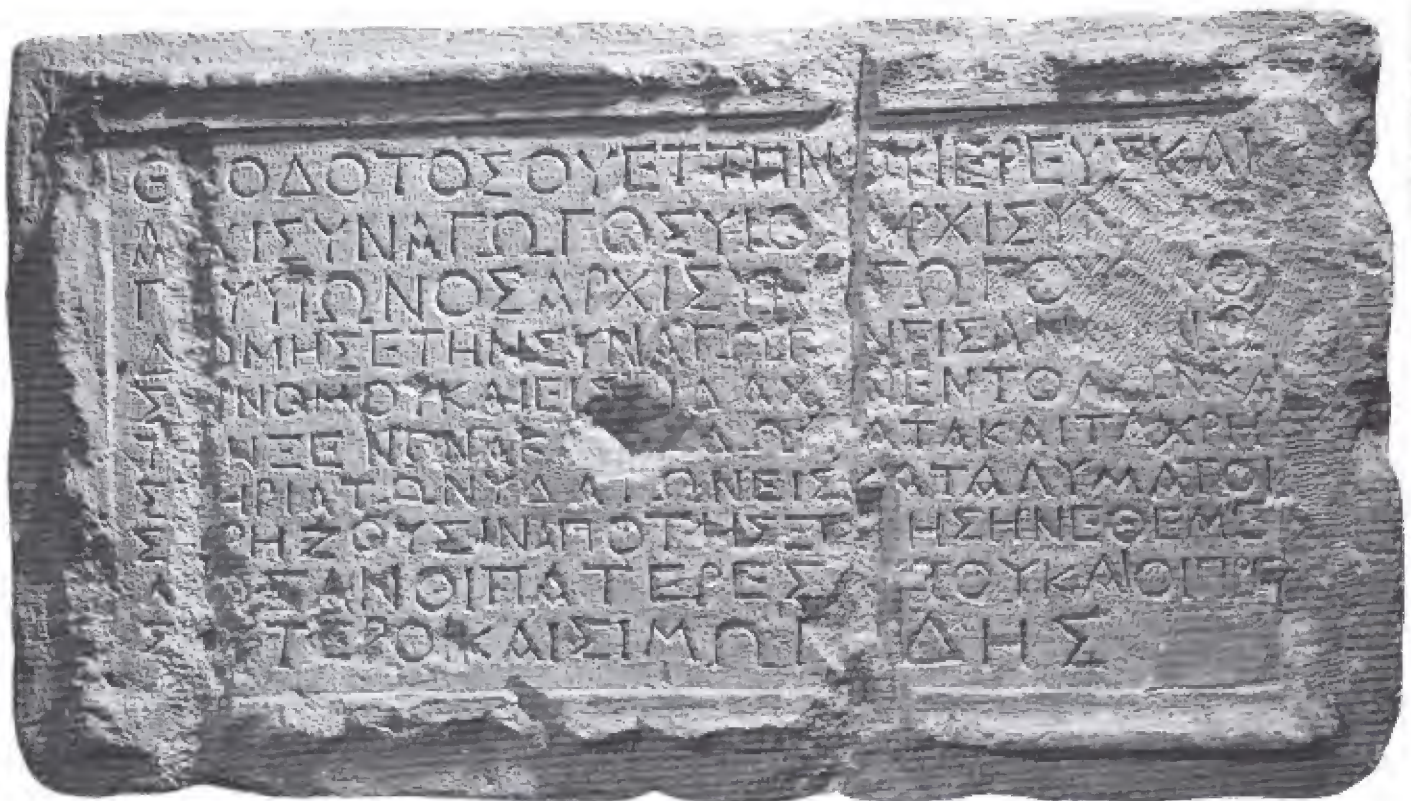 Θ ΟΔΟΤΟΣΟΥΕΤΤΗΝ ΙΕΡΕΥΣΚΑΙ
Α ΧΙΣΥΝΑΓΩΓΟΣΥΙΟ ΑΡΧΙΣΥ
Γ ΥΥΙΩΝΟΣΑΡΧΙΣΥ ΓΩΓΟΥ ΚΟ
Δ ΟΜΗΣΕΤΗΝΣΥΝΑΓΩΓ ΝΕΙΣΑΝ Ω
Σ ΙΝΟΜΟΥΚΑΙΕΙΣ ΙΔΑΧ ΝΕΝΤΟΛΩΝΚΑΙ
Τ ΝΞΕΝΩΝΑΚ ΔΩΜΑΤΑΚΑΙΤΑΧΡΗ
Σ ΗΡΙΑΤΩΝΥΔΑΤΩΝΕΙΣΚΑΤΑΛΥΜΑΤΟΙ
Σ ΡΗΖΟΥΣΙΝΑΠΟΤΗΣΞΕ ΗΣΗΝΕΘΕΜΕ
Λ ΣΑΝΟΙΠΑΤΕΡΕΣ ΥΤΟΥΚΑΙΟΙΠΡΕ
Σ ΤΕΡΟΙΚΑΙΣΙΜΩΝ ΔΗΣ